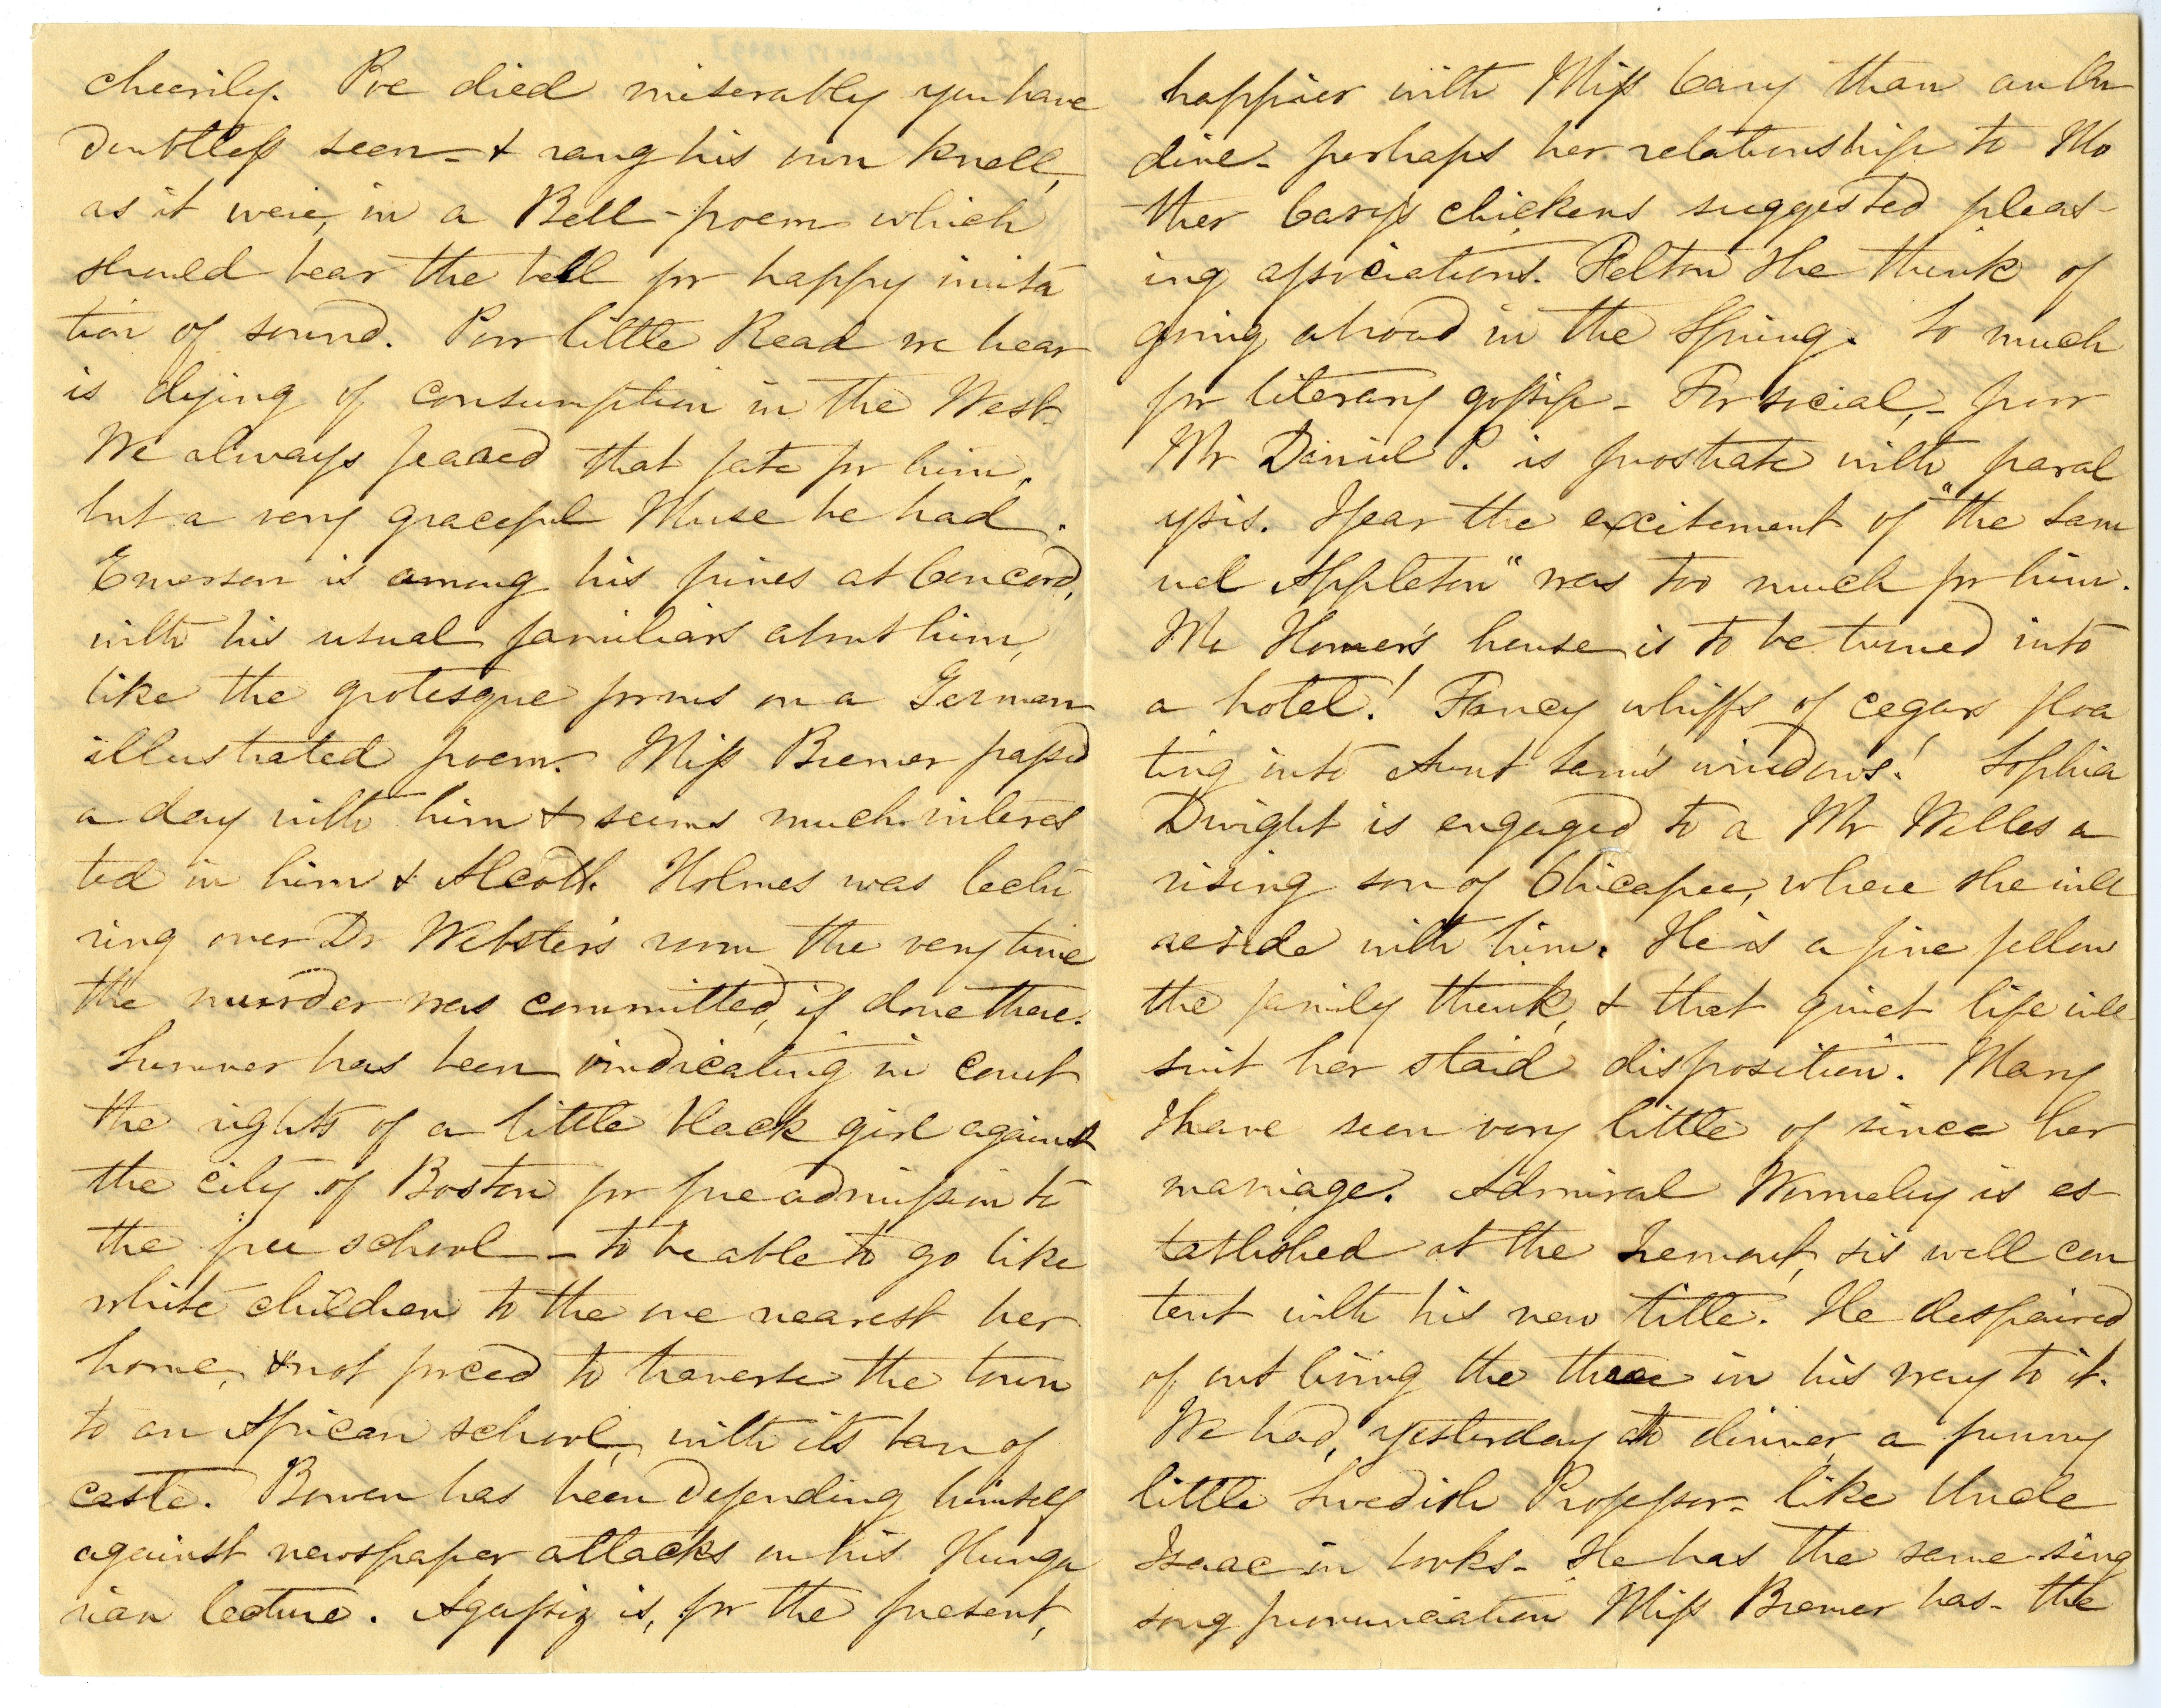 cheerily. Poe died miserably you have
doubtless seen - & rang his own knell,
as it were, in a Bell-poem which
should bear the bell for happy imita
tion of sound. Poor little Read we hear
is dying of consumption in the West.
We always feared that fate for him,
but a very graceful Muse he had.
Emerson is among his pines at Concord,
with his usual familiars about him,
like the grotesque forms on a German
illustrated poem. Miss Bremer passed
a day with him & seems much interes
ted in him & Alcott. Holmes was lectu
ring over Dr Webster's room the very time
the murder was committed, if done there.
Sumner has been vindicating in court
the rights of a little black girl against
the city of Boston for free admission to
the free school - to be able to go like
white children to the one nearest her
home, & not forced to traverse the town
to an African school, with its ban of
caste. Bowen has been defending himself
against newspaper attacks on his Hunga
rian lecture. Agassiz is, for the present,
happier with Miss Cary than an On
dine - perhaps her relationship to Mo
ther Cary's chickens suggested pleas-
ing associations. Felton she think of
going abroad in the Spring. So much
for literary gossip - For social, - poor
Mr Daniel P. is prostrate with paral
ysis. I fear the excitement of "the Sam
uel Appleton" was too much for him.
Mr Homer's house is to be turned into
a hotel! Fancy whiffs of cegars floa
ting into Aunt Sam's windows! Sophia
Dwight is engaged to a Mr Welles a
rising son of Chicapee, where she will
reside with him. He is a fine fellow
the family think, & that quiet life will
suit her staid disposition. Mary
I have seen very little of since her
marriage. Admiral Wormeley is es-
tablished at the Tremont, & is well con
tent with his new title. He despaired
of out living the three in his way to it.
We had, yesterday at dinner, a funny
little Swedish Professor - like Uncle
Isaac in looks - He has the same sing
song pronunciation Miss Bremer has - the